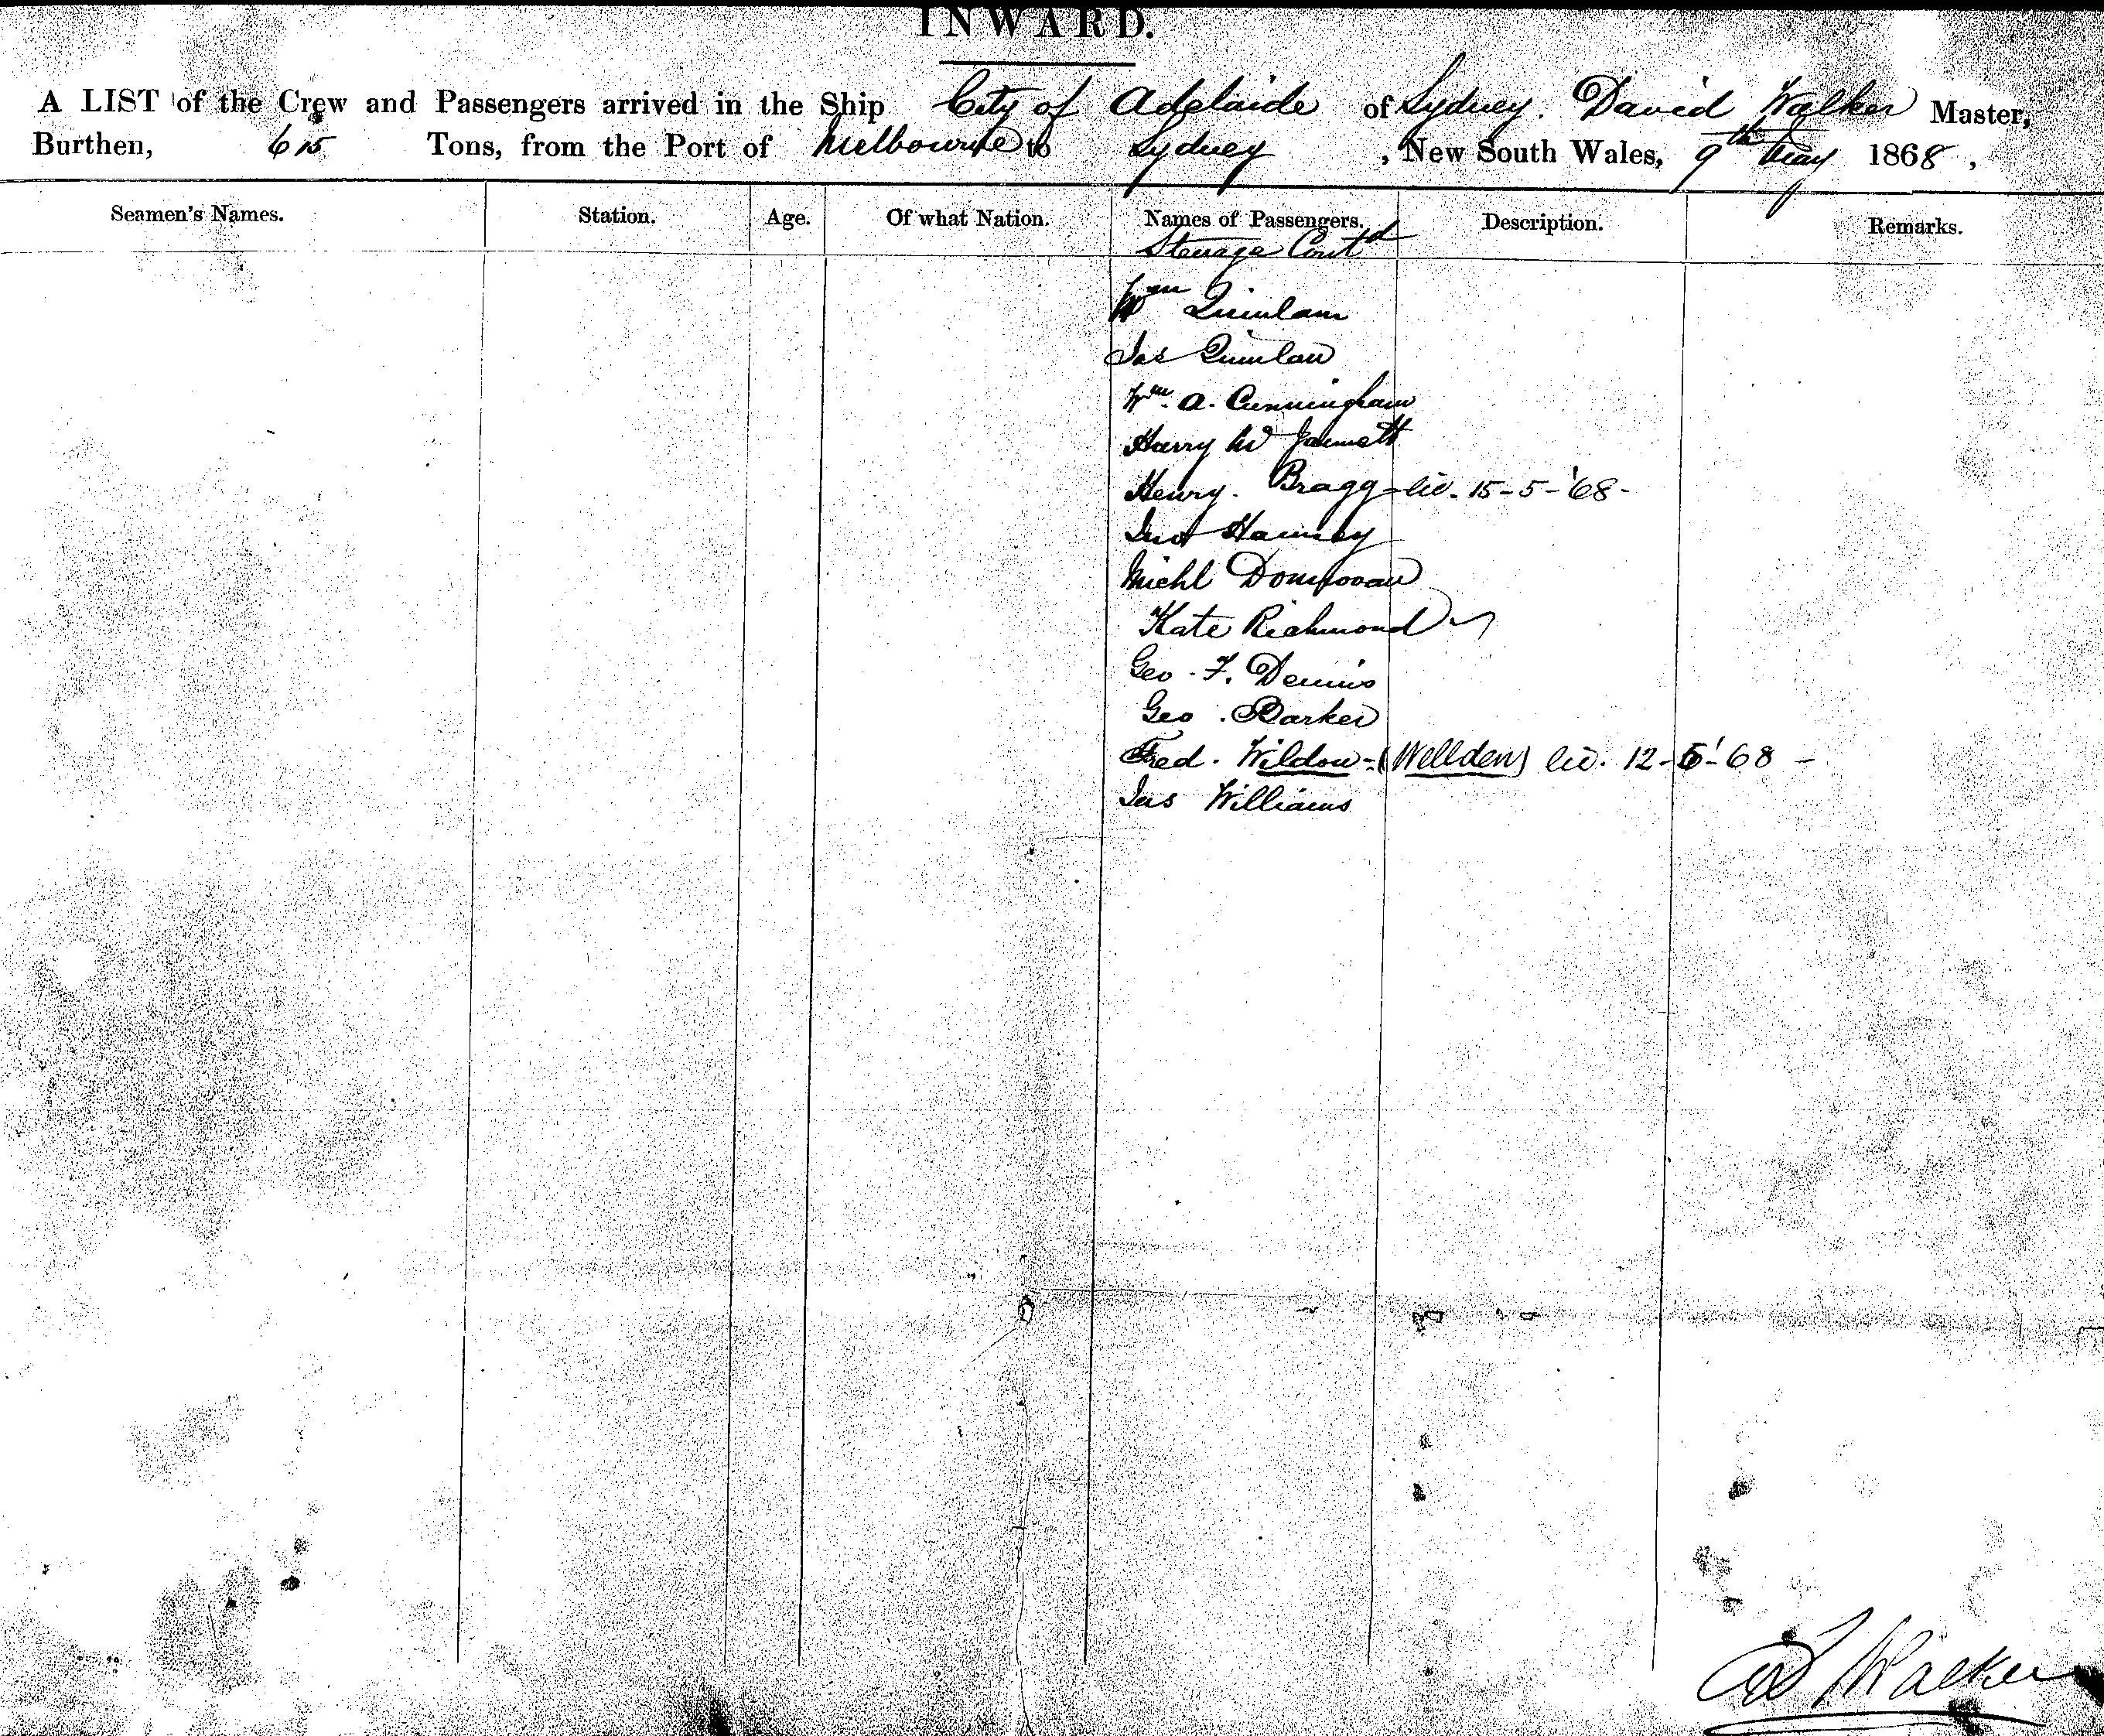 INWARD.
A LIST of the Crew and Passengers arrived in the Ship City of Adelaide of Sydney. David Walker Master,
Burthen, 615 Tons, from the Port of Melbourne to Sydney, New South Wales, 9th May 1868,
Seamen's Names. Station. Age. Of what Nation. Names of Passengers. Description. Remarks.
Steerage Contd
Wm Quinlan
Jas Quinlan
Wm. A. Cunningham
Harry W
Henry. Bragg - lic. 15-5-'68-
Jno
Michl Donnovan
Kate Richmond
Geo. F. Dennis
Geo. Barker
Fred. Wildon - (Wellden) lic. 12-6-'68 -
Jas Williams
D Walker